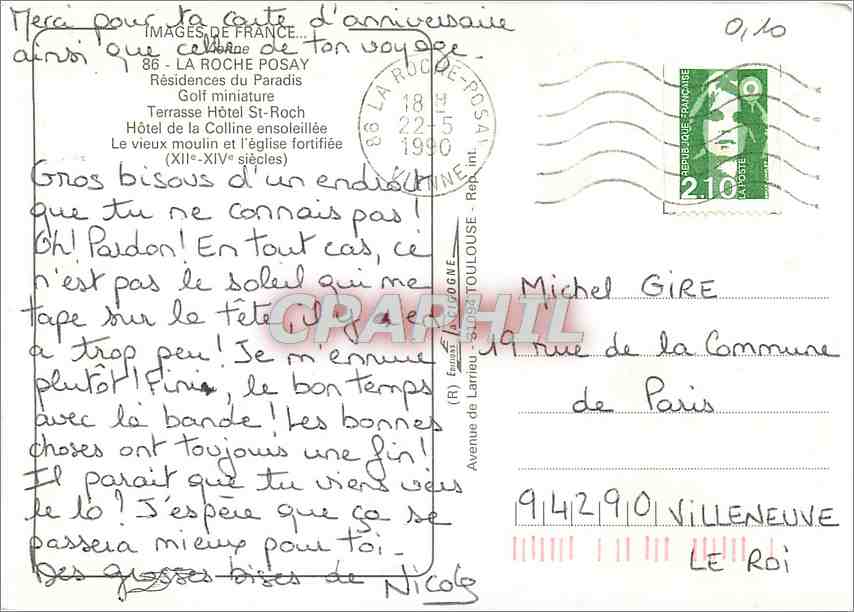 Merci pour ta carte d'anniversaire
ainsi que celle de ton voyage.
IMAGES DE FRANCE...
Vienne
86 - LA ROCHE POSAY
Résidences du Paradis
Golf miniature
Terrasse Hôtel St-Roch
Hôtel de la Colline ensoleillée
Le vieux moulin et l'église fortifiée
(XIIe-XIVe siècles)
Gros bisous d'un endroit
que tu ne connais pas!
Oh! Pardon! En tout cas, ce
n'est pas le soleil qui me
tape sur la tête, il y en
a trop peu! Je m'ennuie
plutôt! Fini, le bon temps
avec la bande! Les bonnes
choses ont toujours une fin!
Il parait que tu viens vers
le 10? J'espère que ça se
passera mieux pour toi.
Des grosses bises de Nicole
86 LA ROCHE-POSAY
18 H
22-5
1990
VIENNE
(R) Editions La CIGOGNE
Avenue de Larrieu - 31094 TOULOUSE - Rep. int.
CPARHIL
0,10
REPUBLIQUE FRANÇAISE
2.10
LA POSTE
Michel GIRE
19 rue de la Commune
de Paris
94290 VILLENEUVE
LE ROI